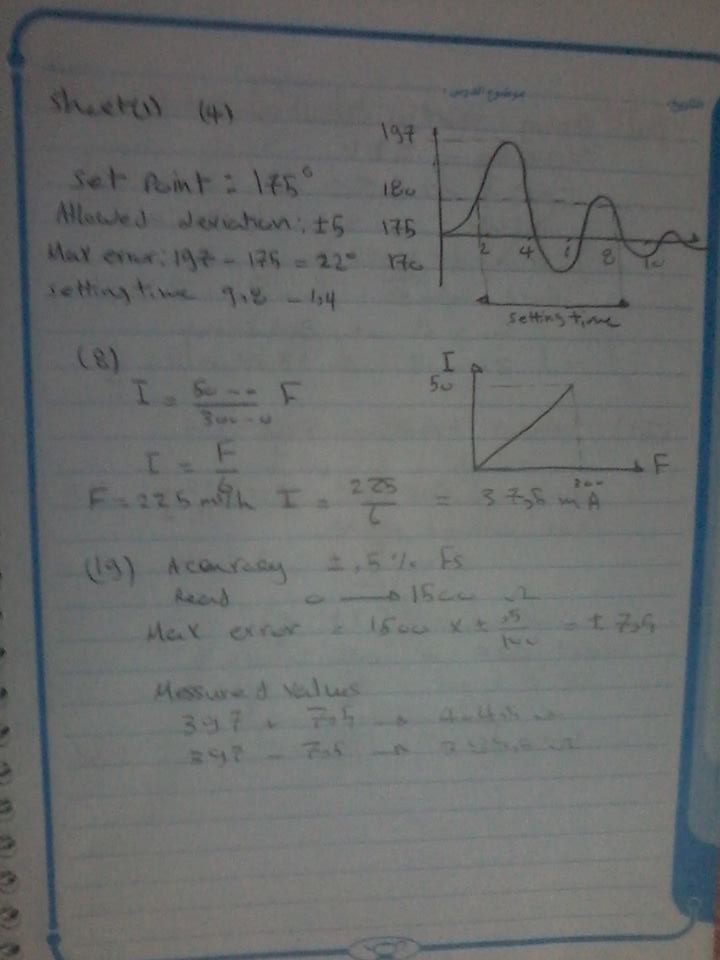 موضوع الدرس:
التاريخ
Sheet(1) (4)
Set Point = 175°
Allowed deviation: ±5
Max error: 197 - 175 = 22°
setting time 9,8 - 1,4
197
180
175
170
2 4 6 8 10
setting time
(8)
I = 50 - 0 / 300 - 0 F
I = F / 6
F = 225 m³/h I = 225 / 6 = 37,5 mA
I
50
F
300
(19) Accuracy ± ,5 % Fs
Read 0 → 1500 Ω
Max error = 1500 x ± ,5 / 100 = ± 7,5
Messured values
397 + 7,5 → 404,5 Ω
397 - 7,5 →